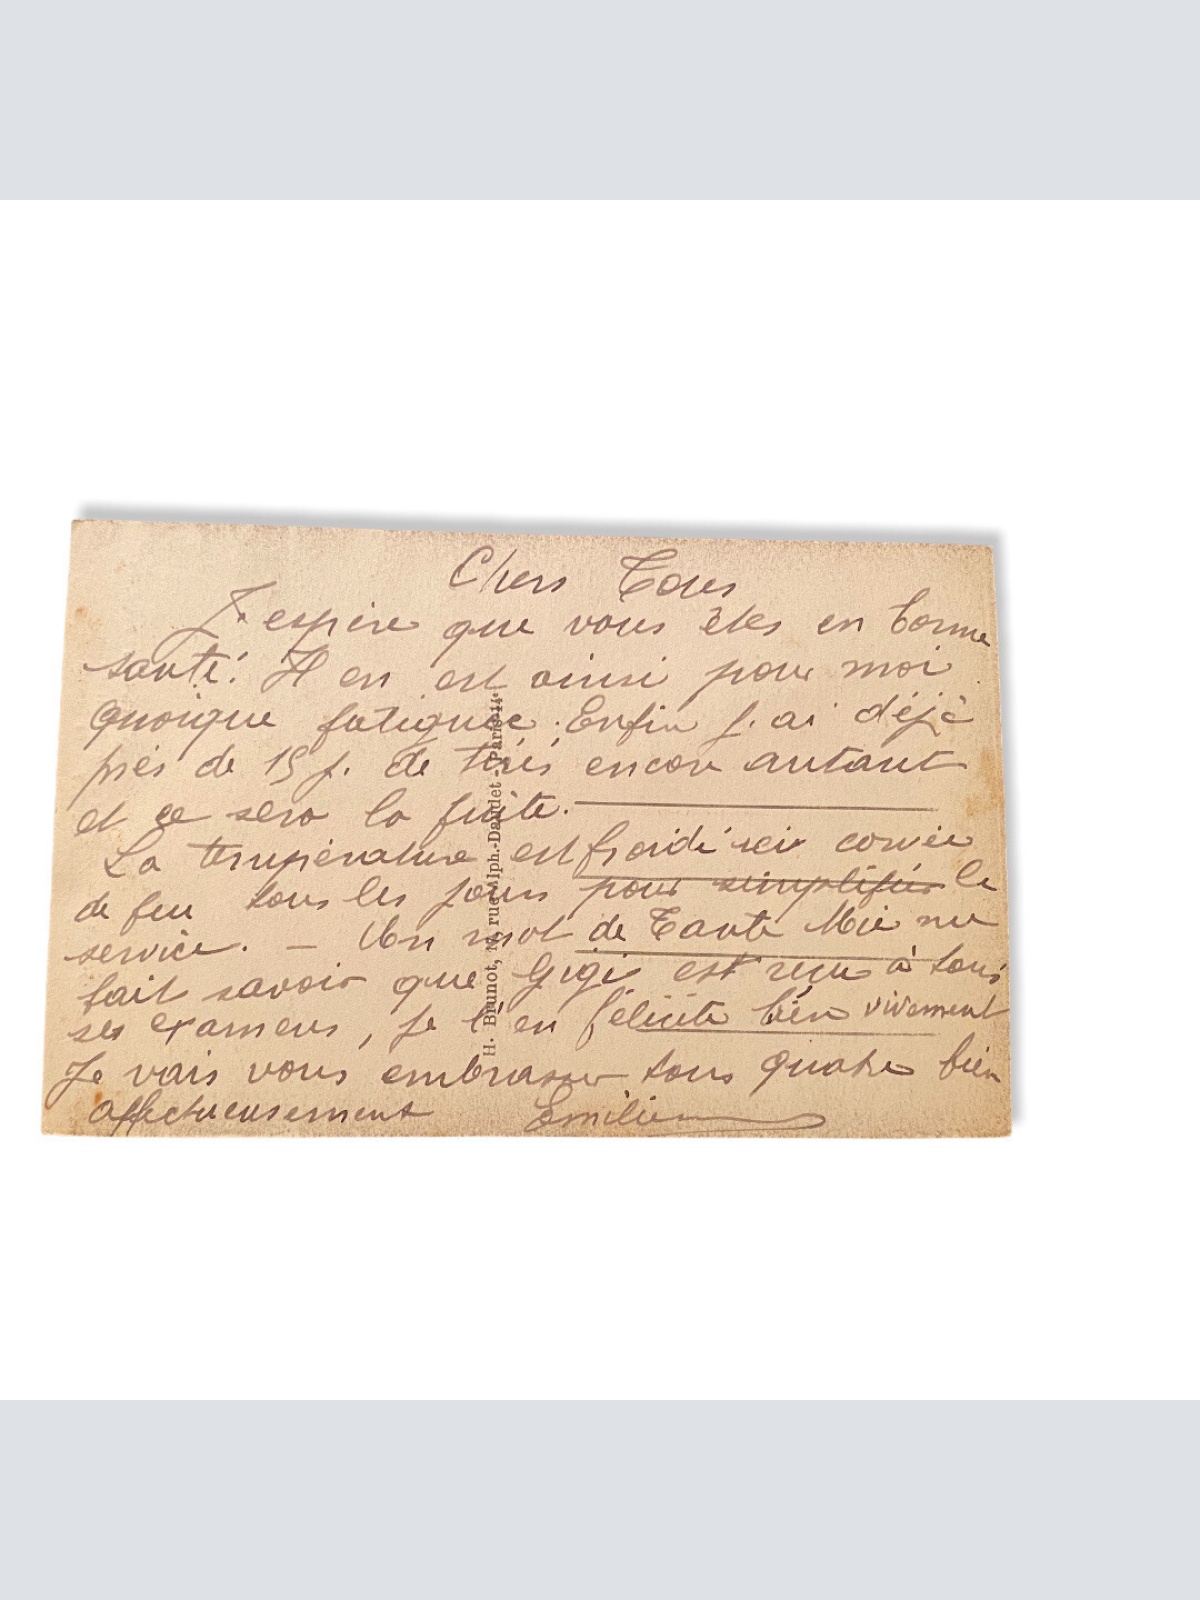 Chers Tous
J'espère que vous êtes en bonne
santé. Il en est ainsi pour moi
quoique fatiguée. Enfin j'ai déjà
près de 15 j. de tirés encor autant
et ce sera la fuite.
La température est froide ici corvée
de feu tous les jours pour simplifier le
service. – Un mot de Tante Mie me
fait savoir que Gigi est reçu à tous
ses examens, je l'en félicite bien vivement
Je vais vous embrasser tous quatre bien
affectueusement Emilie
H. Brunot, rue Alph.-Daudet - Paris-14